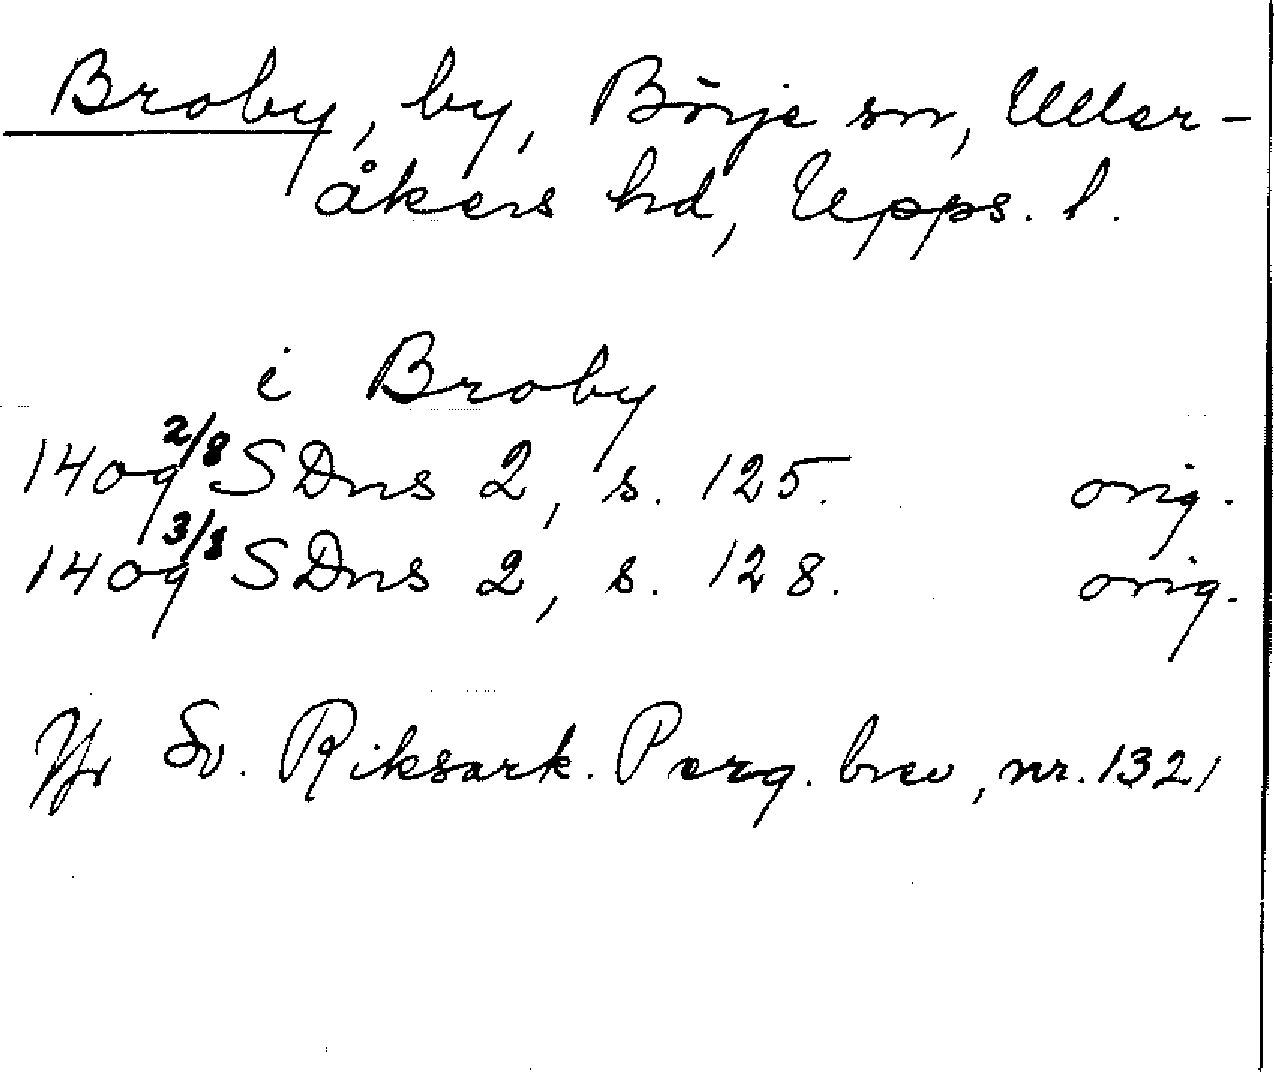 Broby, by, Börje sn, Uller-
åkers hd, Upps. l.
i Broby
1409 2/8 SDns 2, s. 125. orig.
1409 3/8 SDns 2, s. 128. orig.
Jfr Sv. Riksark. Perg. brev, nr. 1321